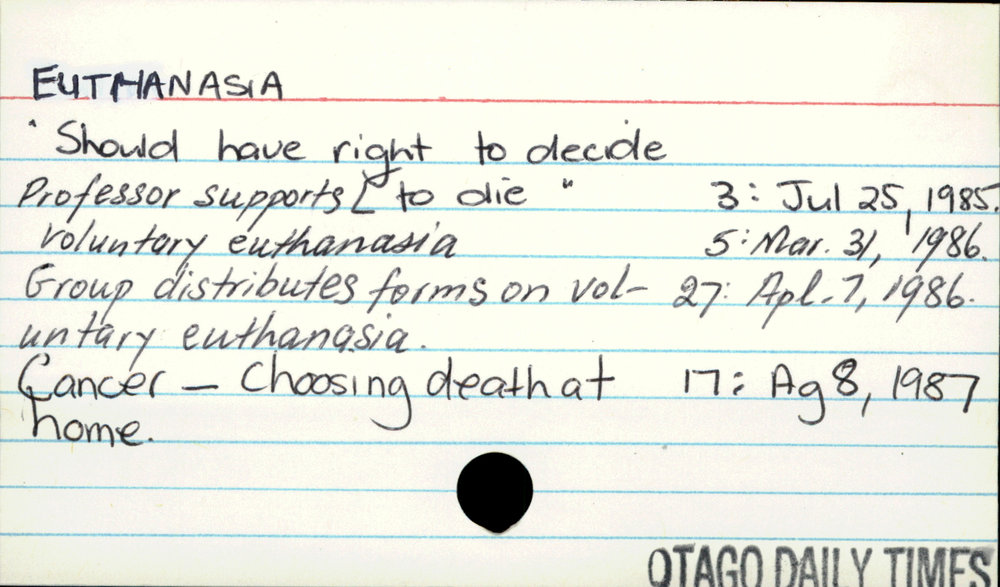 EUTHANASIA
"Should have right to decide
Professor supports [ to die" 3: Jul 25, 1985.
voluntary euthanasia 5: Mar. 31, 1986.
Group distributes forms on vol- 27: Apl. 7, 1986.
untary euthanasia.
Cancer — Choosing death at 17: Ag 8, 1987
home.
OTAGO DAILY TIMES